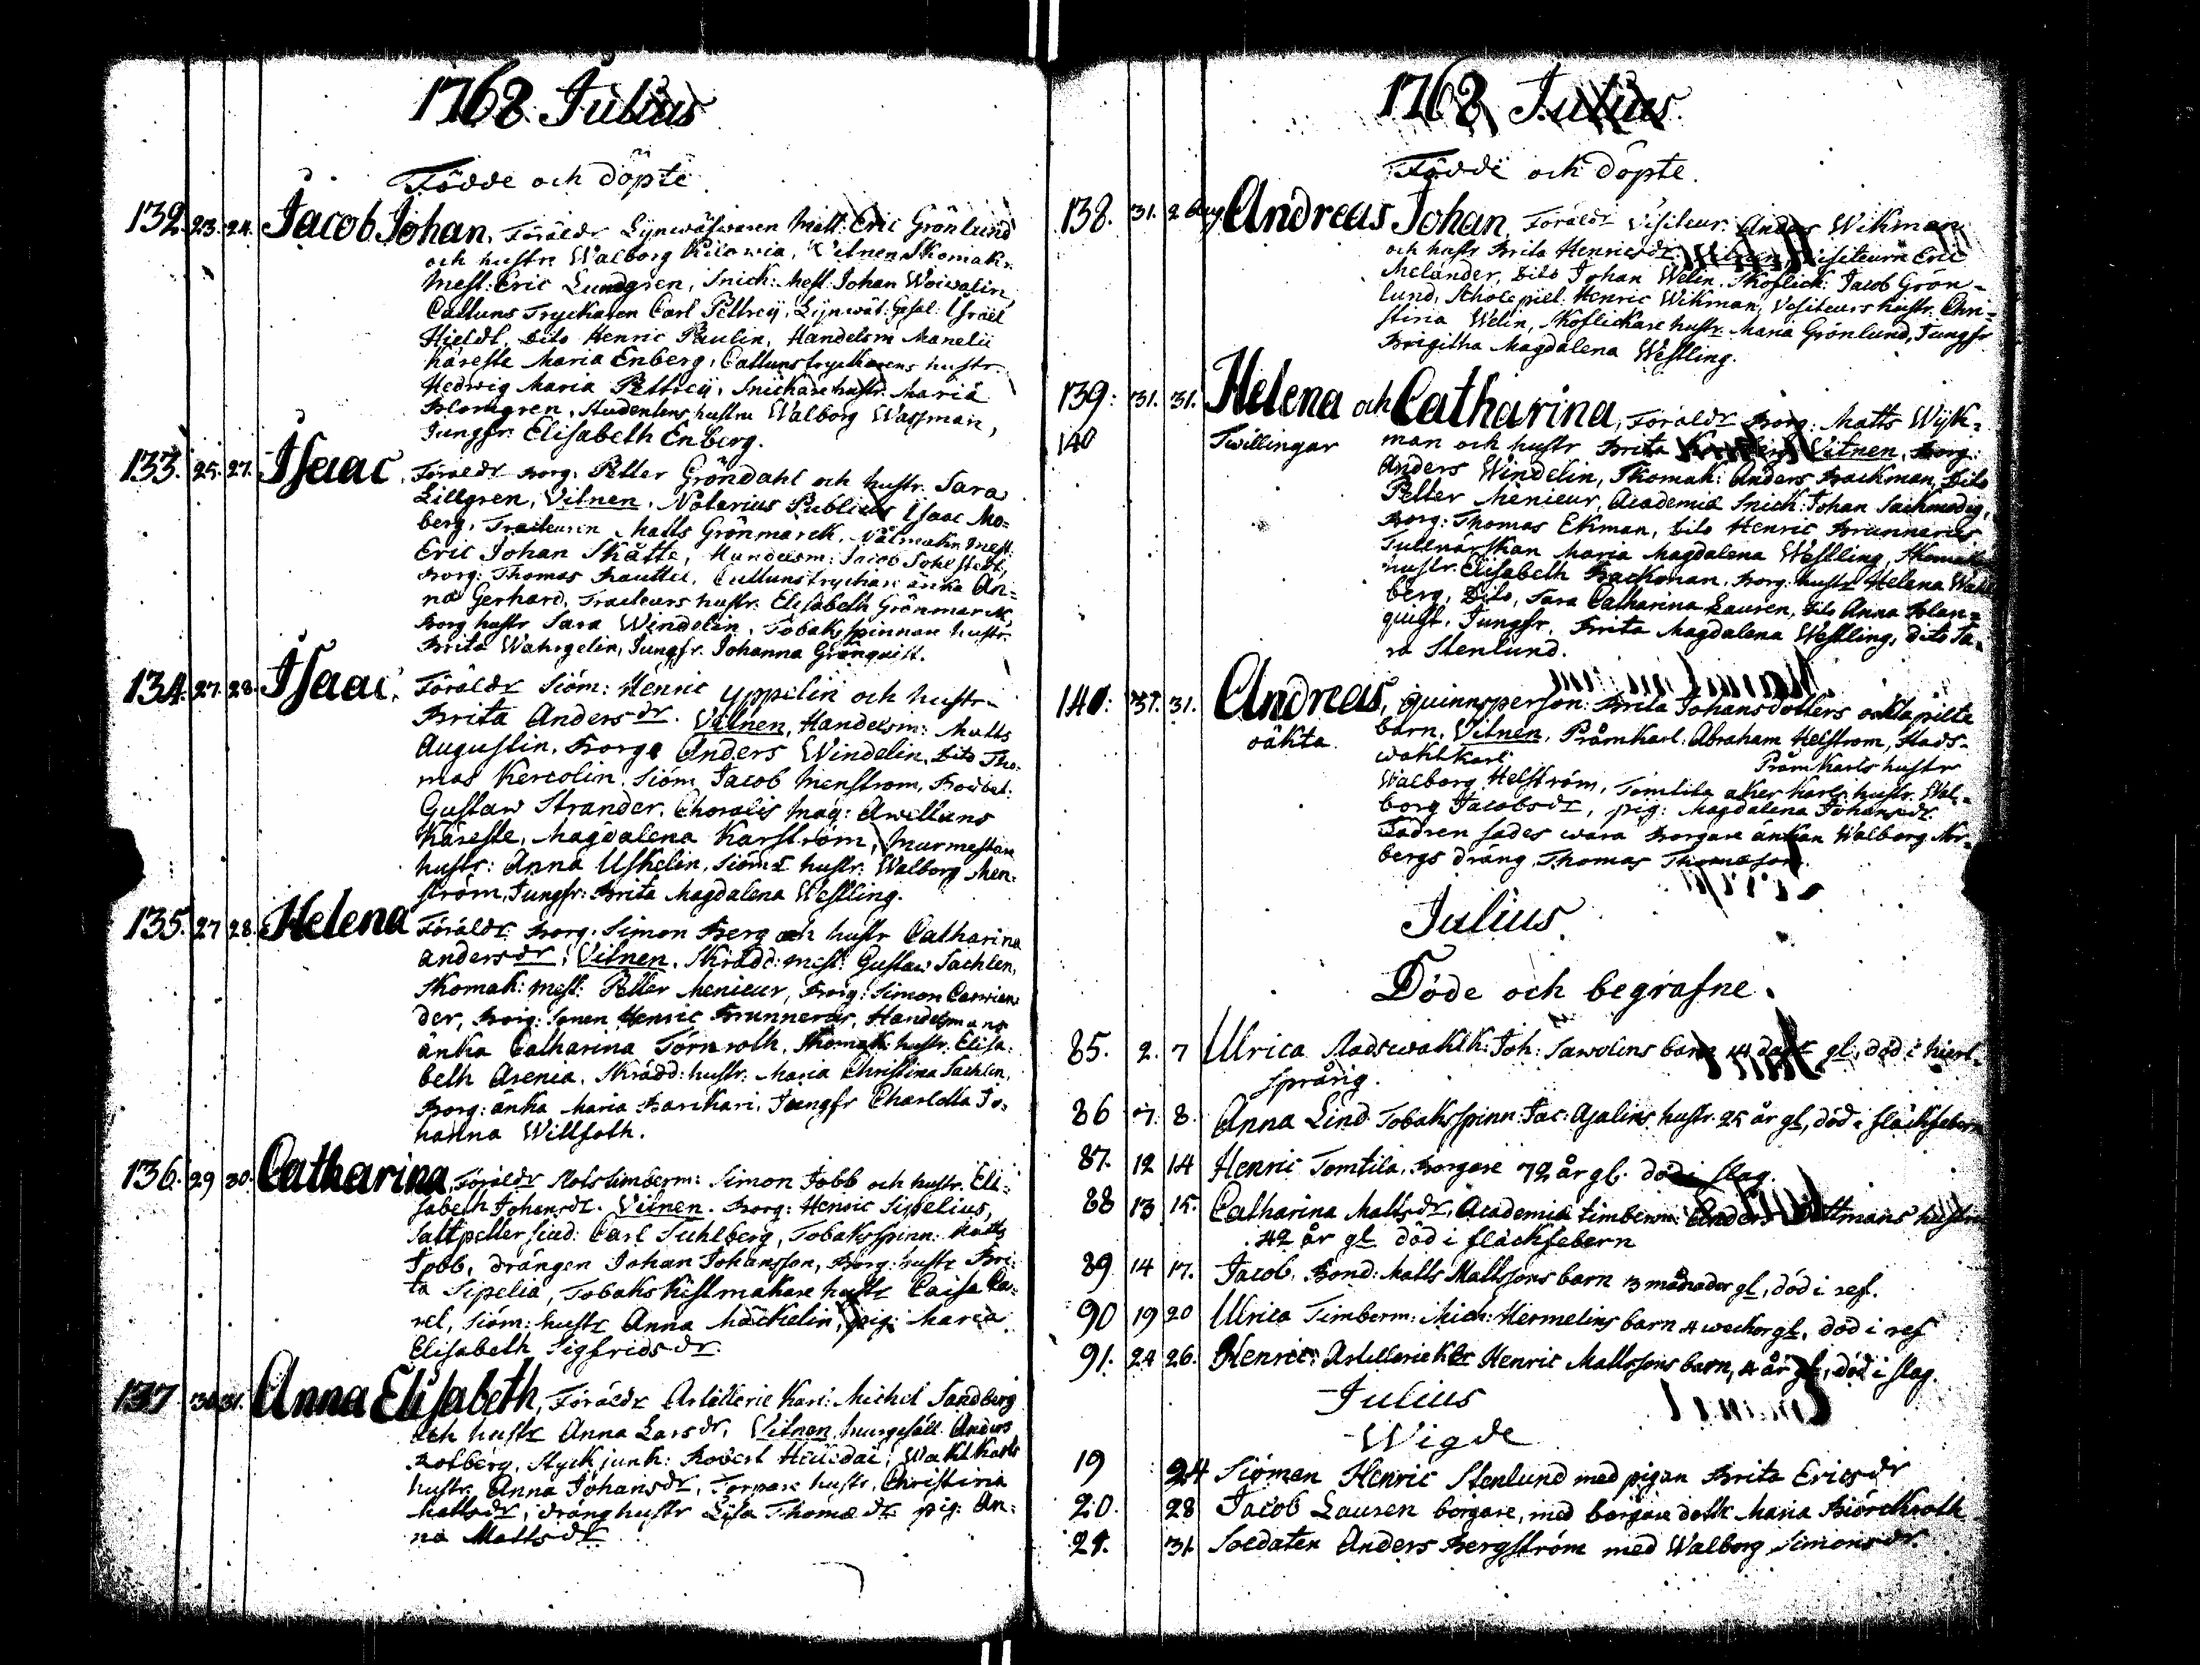 1768 Julius
Födde och döpte
132. 23. 24. Jacob Johan, Föräldr Lynwäfwaren Matt: Eric Grönlund
och hustru Walborg Kilowia, Vitnen Skomakr.
Mest: Eric Lundgren, Snick: Mest: Johan Woiwalin,
Cattuns Tryckaren Carl Pettreij, Lijnwäf: Gesäl: Israel
Hieldt, Dito Henric Paulin, Handelsm Manelii
käreste Maria Enberg, Cattunstryckarens hustr.
Hedwig Maria Pettreij, Snickare hustr. Maria
Blomgren, Studentens hustru Walborg Wassman,
Jungfr. Elisabeth Enberg.
133. 25. 27. Isaac, Föräldr Borg: Petter Gröndahl och hustr. Sara
Lillgren, Vitnen, Notarius Publicus Isaac Mo-
berg, Tracteuren Matts Grönmarck, Målmakr Mest:
Eric Johan Skåtte, Handelsm: Jacob Sohlstedt,
Borg: Thomas Rauttu, Cattunstryckare änka An-
na Gerhard, Tracteurs hustr. Elisabeth Grönmarck,
Borg hustr Sara Windelin, Tobaksspinnan hustr.
Brita Wahrgelin, Jungfr. Johanna Grönquist.
134. 27. 28. Isaac, Föräldr Siöm: Henric Yppelin och hustr.
Brita Andersdr. Vitnen, Handelsm: Matts
Augustin, Borge Anders Windelin, Dito Tho-
mas Kercolin, Siöm Jacob Menstrom,
Gustaw Strander, Choralis Mag: Awellans
Käreste, Magdalena Karström, Murmestan
hustr: Anna Uskelin, Siömr hustr. Walborg Men-
ström, Jungfr: Brita Magdalena Westling.
135. 27 28. Helena Föräldr Borg: Simon Berg och hustr Catharina
Andersdr, Vitnen, Skrädd: mest: Gustaw Sachlen,
Skomak: mest: Petter Menieur, Borg: Simon Carrien
der, Borg: sonen Henric Brunnerus, Handelsmans
änka Catharina Törnroth, Skomak: hustr. Elisa-
beth Arenia, Skrädd: hustr. Maria Christina Sachlin,
Borg: änka Maria Barckari, Jungfr Charlotta Jo-
hanna Willfoth.
136. 29 30. Catharina, Föräldr Slotstimberm: Simon Jobb och hustr. Eli-
sabeth Johansdr. Vitnen. Borg: Henric Sipelius,
Saltpeter siud: Carl Suhlberg, Tobaksspinn: Matts
Jobb, drängen Johan Johansson, Borg: hustr Bri-
ta Sipelia, Tobaks Kistmakare hustr Caisa Ca-
rel, Siöm: hustr Anna Mäckelin, pig: Maria
Elisabeth Sigfridsdr.
137 30 31. Anna Elisabeth, Föräldr Artillerie Karl: Michel Sandberg
och hustr Anna Larsdr, Vitnen, Murgesäll Anders
Rotberg, Styck junk: Robert, Wakt karls
hustr. Anna Johansdr, Torpare hustr. Christina
Mattsdr, dräng hustr Lisa Thomædr pig: An-
na Mattsdr
1768 Julius.
Födde och döpte.
138. 31. 2 Aug Andreas Johan, Föräldr Visiteur: Anders Wikman
och hustr Brita Henricsdr. Vitnen, Visiteurn Eric
Melander, Dito Johan Welin, Skoflick: Jacob Grön-
lund, Skolepiel: Henric Wikman, Visiteurs hustr. Chri-
stina Welin, Skoflickare hustr. Maria Grönlund, Jungfr
Brigitha Magdalena Westling.
139: 31. 31. Helena och Catharina, Föräldr Borg: Matts Wijk-
140 Twillingar man och hustr Brita Vitnen, Borg:
Anders Windelin, Skomak: Anders Backman, Dito
Petter Menieur, Academiæ Snick: Johan Sachmodig,
Borg: Thomas Ekman, Dito Henric Brunnerus,
Tullnärskan Maria Magdalena Westling, Skomak
hustr. Elisabeth Backman, Borg: hustr Helena Wahl
berg, Dito, Sara Catharina Lauren, Dito Anna Blan-
quist, Jungfr. Brita Magdalena Westling, Dito Sa-
ra Stenlund.
141: 31. 31. Andreas, Quinnsperson: Brita Johansdotters oäkta pilte
oäkta. barn, Vitnen, Pråmkarl: Abraham Helstrom, Stads-
wahtkarl Pråm karls hustr
Walborg Helström, Tomtila aker karls hustr. Wal-
borg Jacobsdr, pig: Magdalena Johansdr.
Fadren sades wara Borgare änkan Walborg Nor-
bergs dräng Thomas Thomasson.
Julius
Döde och begrafne.
85. 2. 7 Ulrica Stadswahtk: Joh: Sawolins barn 14 dagr gl, död i hiert-
språng.
86 7. 8. Anna Lind Tobaksspinn: Jac: Asalins hustr. 25 år gl, död i fläckfebern
87. 12 14 Henric Tomtila, Borgare 72 år gl. död i slag.
88 13 15. Catharina Mattsdr, Academiæ timberm: Anders Wittmans hustru
42 år gl död i fläckfebern
89 14 17. Jacob, Bond: Matts Mattssons barn 3 månader gl, död i ref.
90 19 20 Ulrica Timberm: Mich: Hermelins barn 4 weckor gl, död i ref
91. 24 26. Henric: Artillerie klr Henric Mattssons barn, 4 år gl, död i slag.
Julius
Wigde
19 24 Siöman Henric Stenlund med pigan Brita Ericsdr
20. 28 Jacob Lauren borgare, med borgare dottr Maria Biörckroth
21. 31. Soldaten Anders Bergström med Walborg Simonsdr.